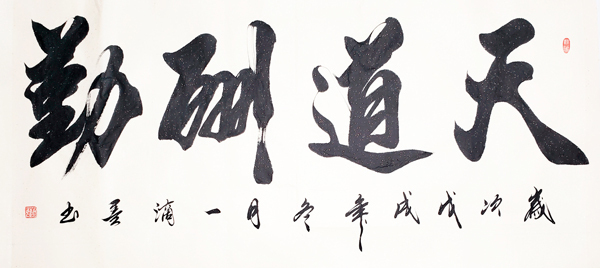 天道酬勤
歲次戊戌年冬月一滴墨书